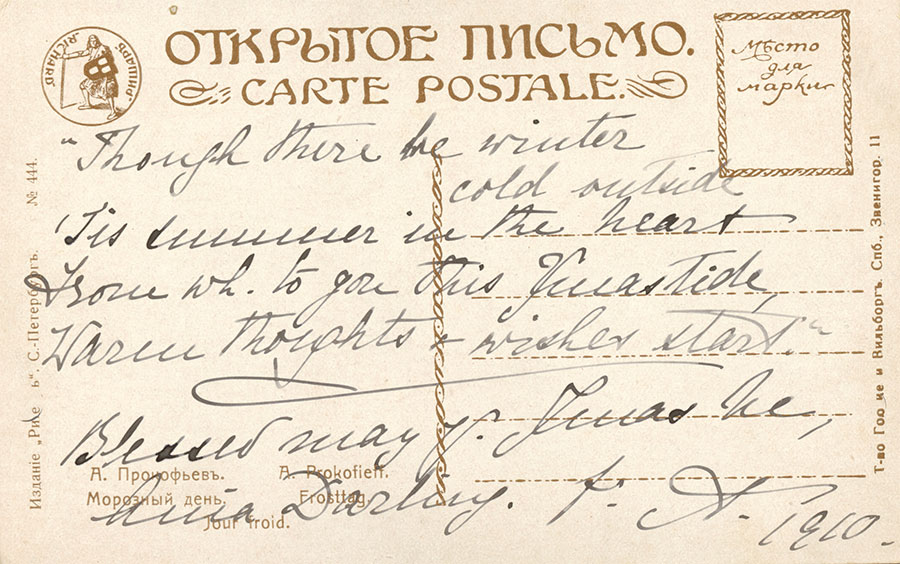 РИШАРЪ. RICHARD
ОТКРЫТОЕ ПИСЬМО.
CARTE POSTALE.
Мѣсто
для
марки
"Though there be winter
cold outside
'Tis summer in the heart
From wh. to you this Xmastide,
Warm thoughts & wishes start."
Blessed may yr. Xmas be,
Darling. f. A.
1910.
А. Прокофьевъ. A. Prokofieff.
Морозный день. Frosttag.
Jour froid.
Изданіе „ ъ“. С.-Петербургъ. № 444.
Т-во Го ке и Вильборгъ. Спб., Звенигор. 11